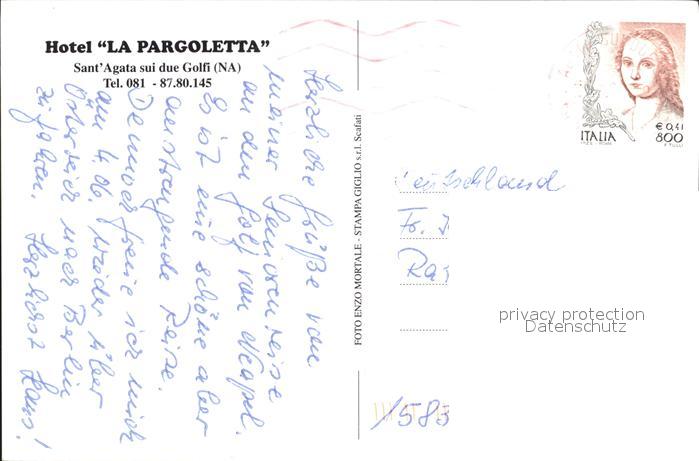 Hotel "LA PARGOLETTA"
Sant'Agata sui due Golfi (NA)
Tel. 081 - 87.80.145
Herzliche Grüße von
meiner Seniorenreise
an den Golf von Neapel.
Es ist eine schöne aber
anstrengende Reise.
Dennoch freue ich mich
am 4.06. wieder über
Österreich nach Berlin
zu fahren. Herzlichst Hans!
FOTO ENZO MORTALE - STAMPA GIGLIO s.r.l. Scafati
ITALIA
€ 0,41
800
Deutschland
Fr.
Ra
privacy protection
Datenschutz
1585